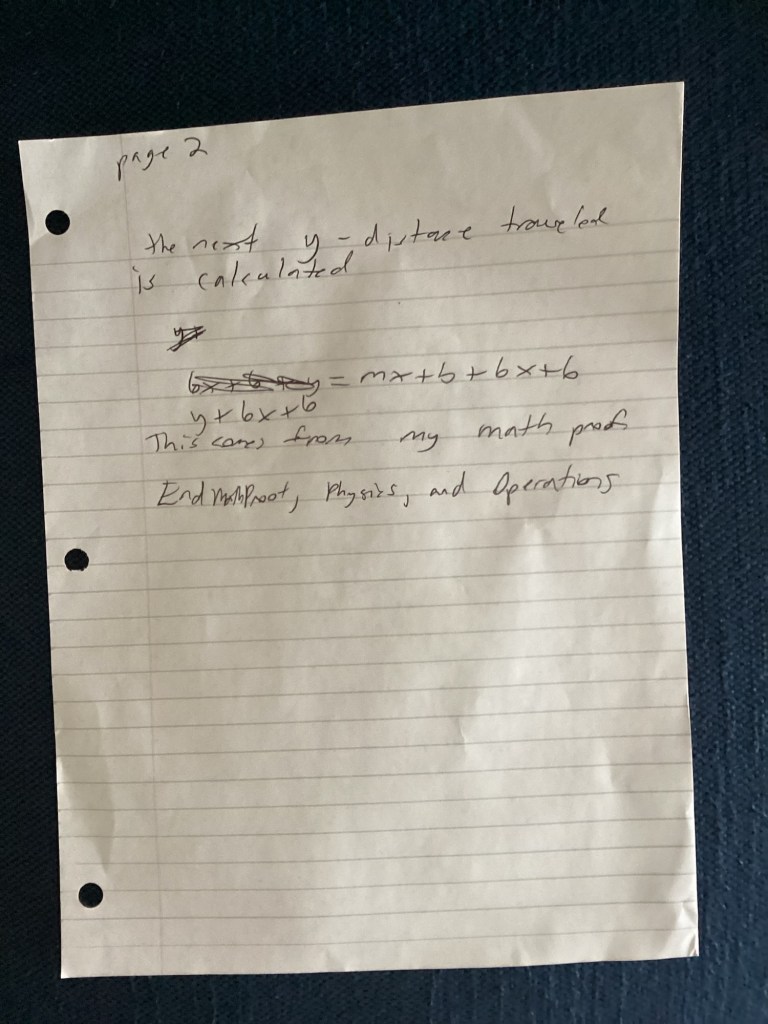 page 2
the next y - distance traveled
is calculated
= mx + b + bx + b
y + bx + b
This comes from my math proof
End MathProof, Physics, and Operations